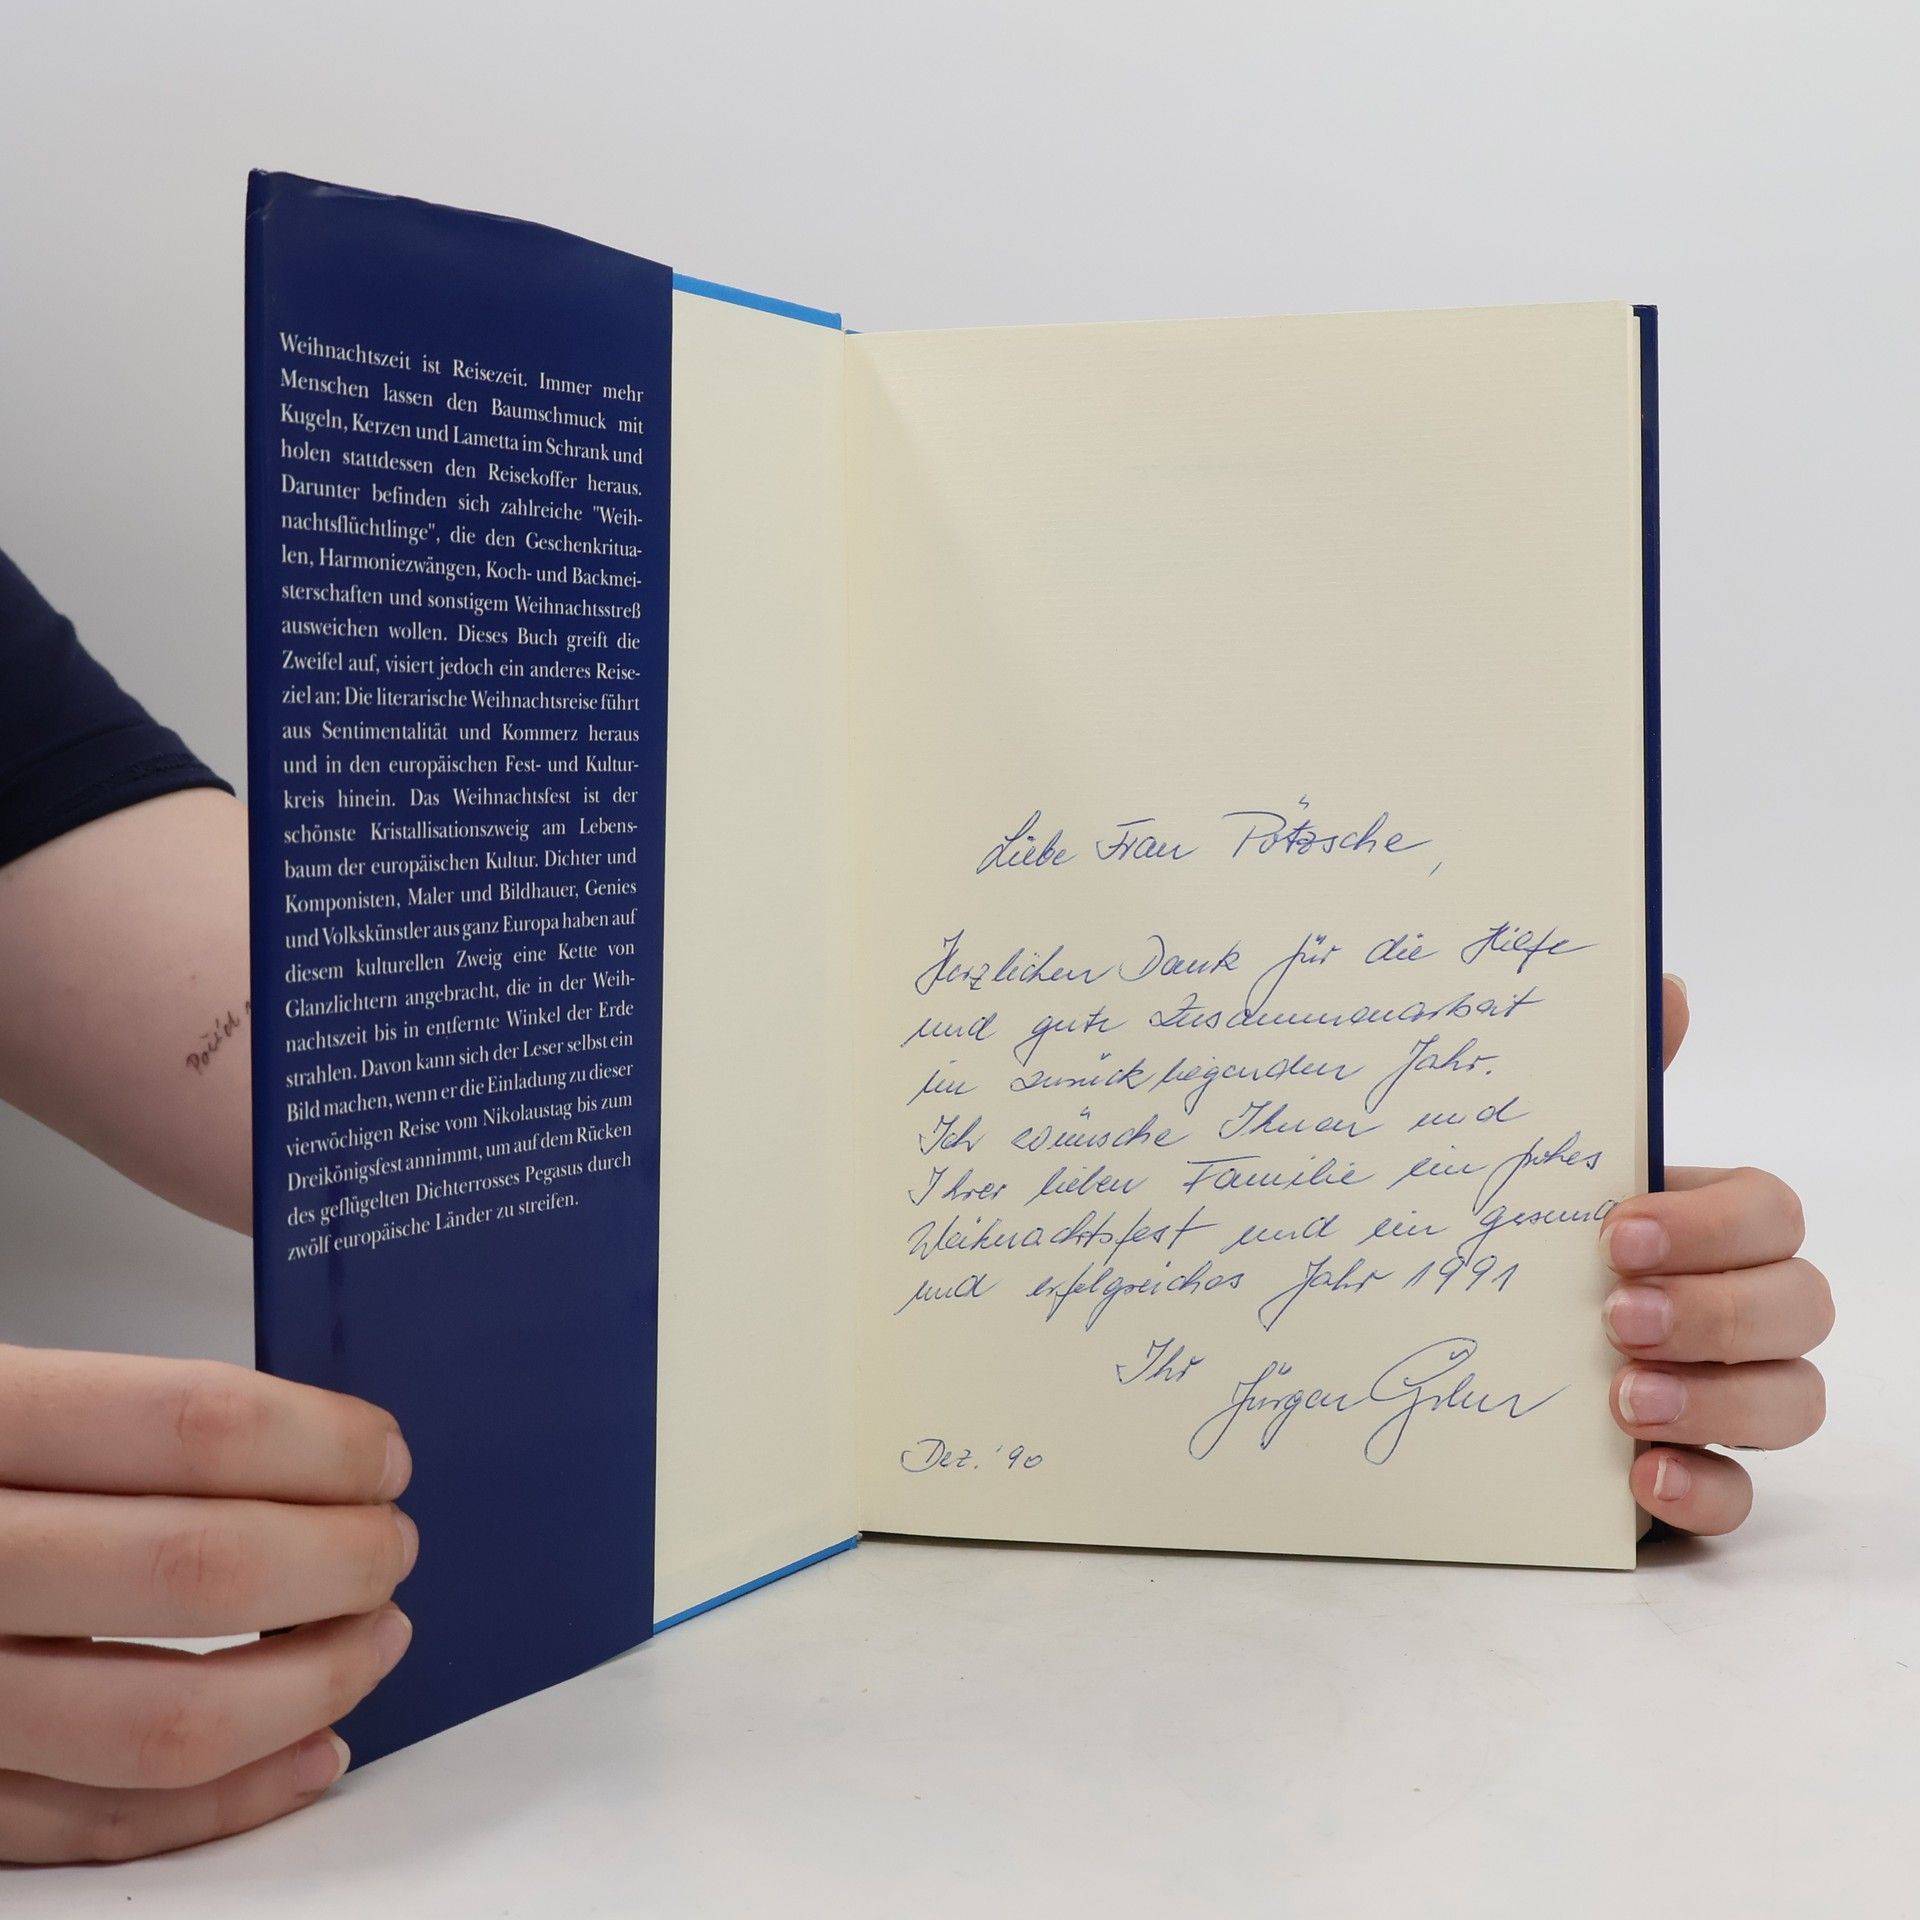 Weihnachtszeit ist Reisezeit. Immer mehr
Menschen lassen den Baumschmuck mit
Kugeln, Kerzen und Lametta im Schrank und
holen stattdessen den Reisekoffer heraus.
Darunter befinden sich zahlreiche "Weih-
nachtsflüchtlinge", die den Geschenkritua-
len, Harmoniezwängen, Koch- und Backmei-
sterschaften und sonstigem Weihnachtsstreß
ausweichen wollen. Dieses Buch greift die
Zweifel auf, visiert jedoch ein anderes Reise-
ziel an: Die literarische Weihnachtsreise führt
aus Sentimentalität und Kommerz heraus
und in den europäischen Fest- und Kultur-
kreis hinein. Das Weihnachtsfest ist der
schönste Kristallisationszweig am Lebens-
baum der europäischen Kultur. Dichter und
Komponisten, Maler und Bildhauer, Genies
und Volkskünstler aus ganz Europa haben auf
diesem kulturellen Zweig eine Kette von
Glanzlichtern angebracht, die in der Weih-
nachtszeit bis in entfernte Winkel der Erde
strahlen. Davon kann sich der Leser selbst ein
Bild machen, wenn er die Einladung zu dieser
vierwöchigen Reise vom Nikolaustag bis zum
Dreikönigsfest annimmt, um auf dem Rücken
des geflügelten Dichterrosses Pegasus durch
zwölf europäische Länder zu streifen.
Liebe Frau Pötzsche,
Herzlichen Dank für die Hilfe
und gute Zusammenarbeit
im zurückliegenden Jahr.
Ich wünsche Ihnen und
Ihrer lieben Familie ein frohes
Weihnachtsfest und ein
und erfolgreiches Jahr 1991
Ihr Jürgen
Dez. '90